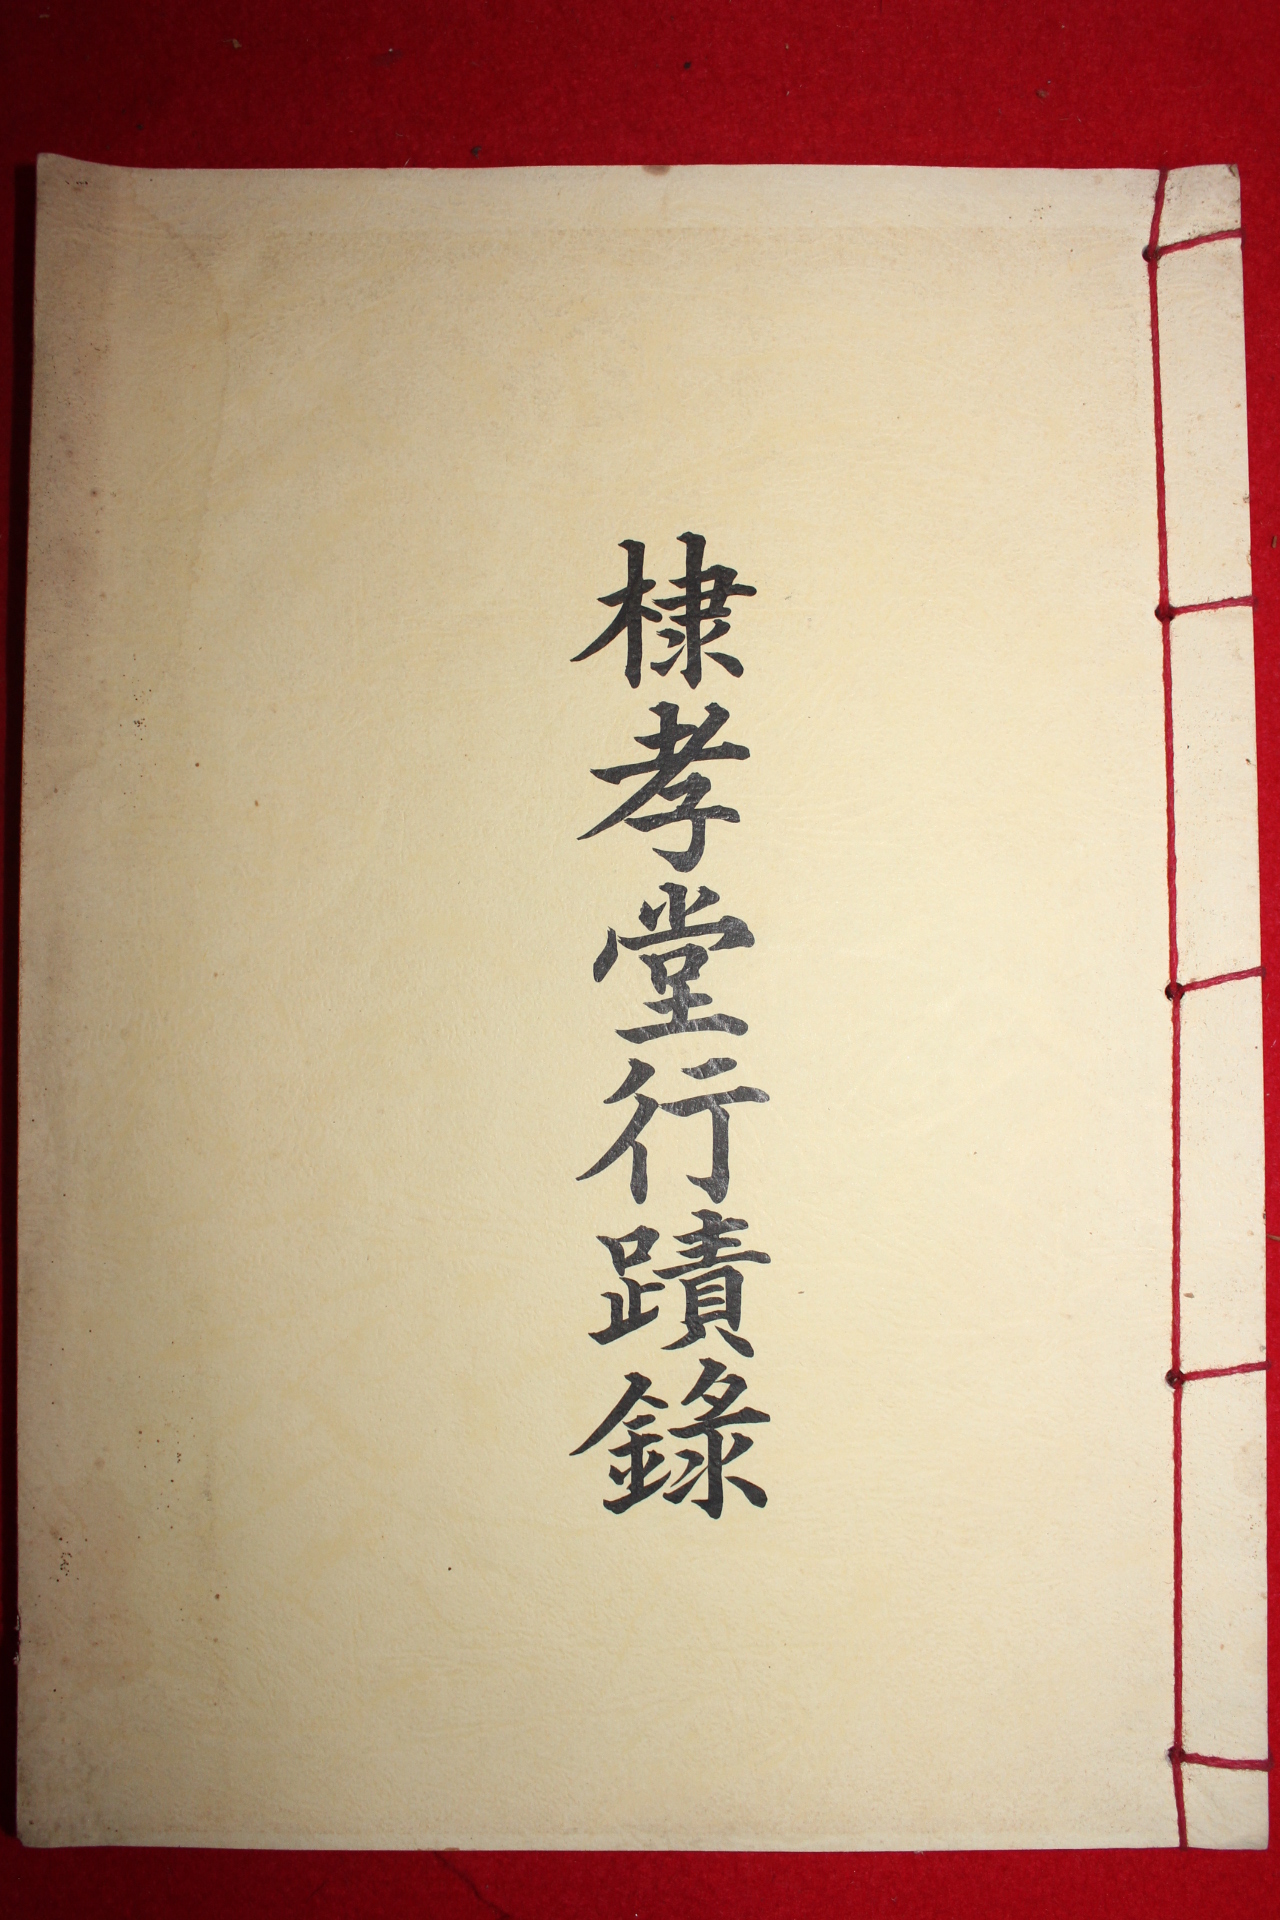 棣孝堂行蹟錄